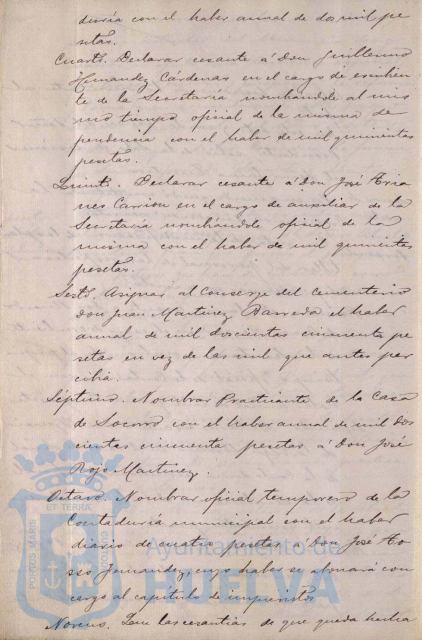 duría con el haber annal de dos mil pe
setas.
Cuarto. Declarar cesante á Don Guillermo
Hernandez Cárdenas en el cargo de escribien
te de la Secretaría nombándole al mis
mo tiempo oficial de la misma de
pendencia con el haber de mil quinientas
pesetas.
Quinto. Declarar cesante á Don José Aria
nes Carrion en el cargo de auxiliar de la
Secretaría nombándole oficial de la
misma con el haber de mil quinientas
pesetas.
Sesto. Asignar al Conserge del Cementerio
Don Juan Martinez Barreda el haber
annal de mil doscientas cincuenta pe
setas en vez de las mil que antes per
cibia.
Séptimo. Nombrar Practicante de la Casa
de Socorro con el haber annal de mil dos
cientas cincuenta pesetas á Don José
Rojo Martinez.
Octavo. Nombrar oficial temporero de la
Contaduría municipal con el haber
diario de cuatro pesetas á Don José
Fernandez, cuyo haber se abonará con
cargo al capítulo de imprevistos.
Noveno. que las cesantías de que queda hecha
PORTUS MARIS
ET TERRÆ
CUSTODIA
Ayuntamiento de
HUELVA